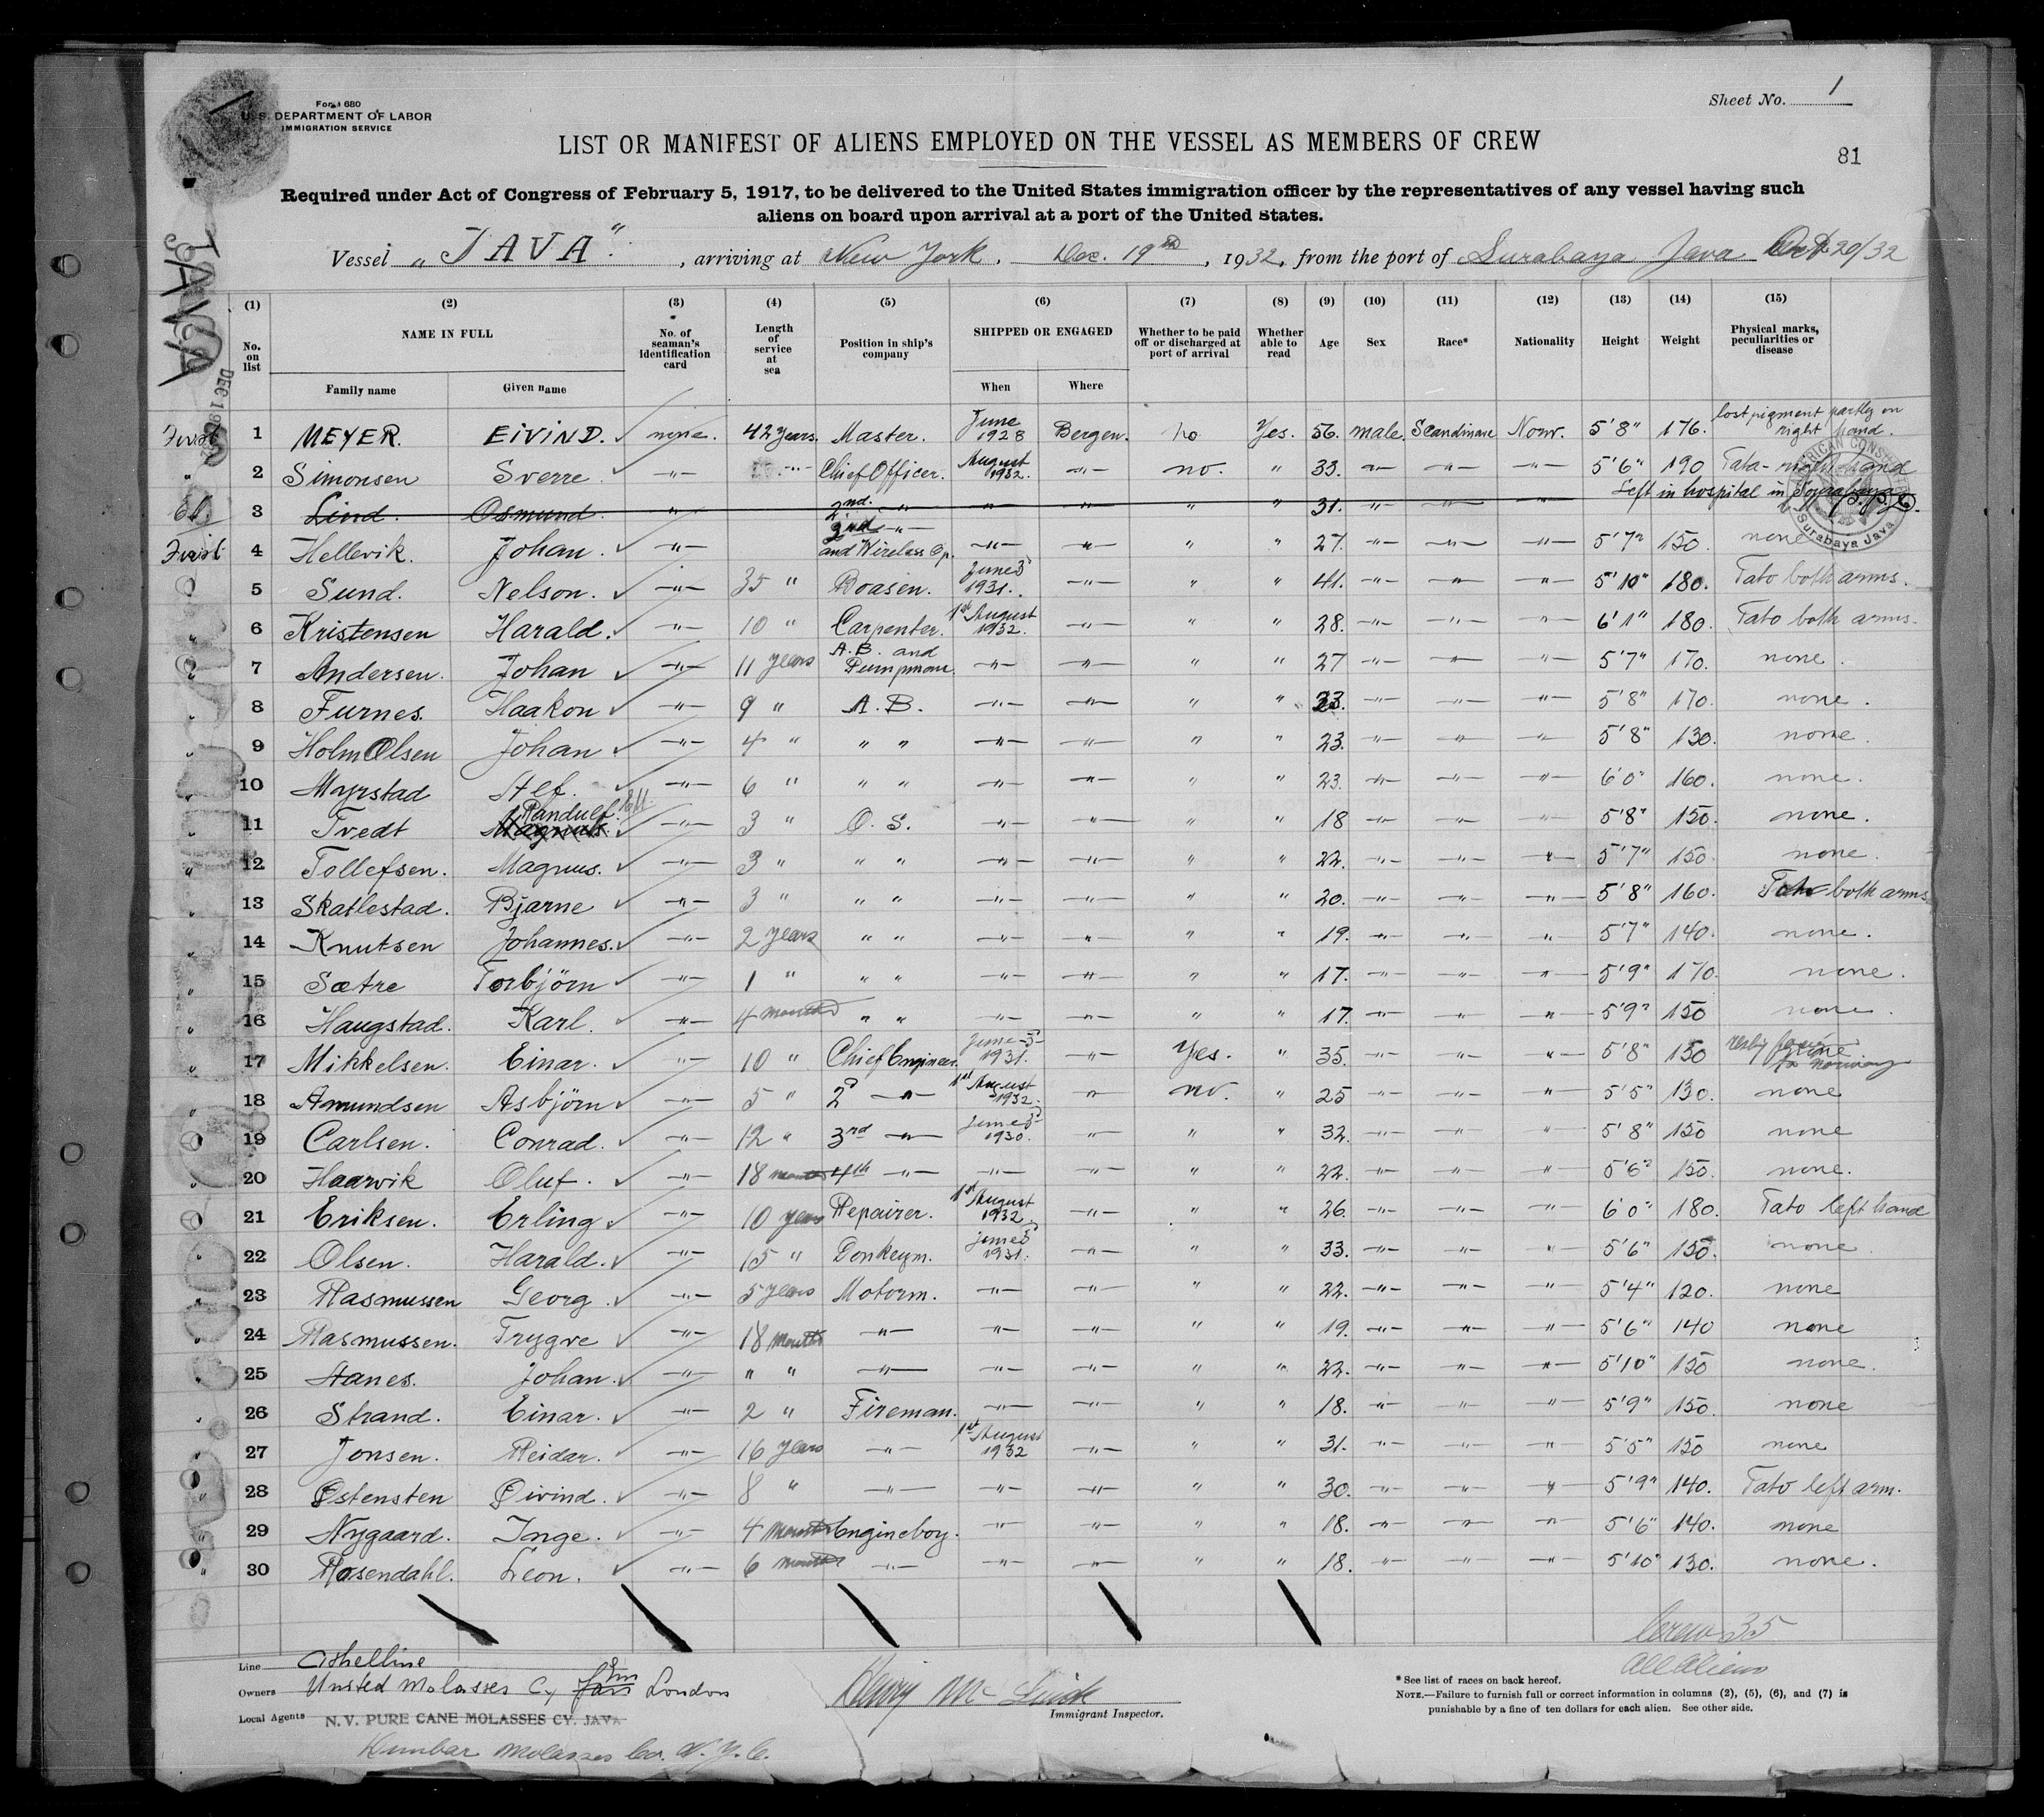 Form 680
U. S. DEPARTMENT OF LABOR
IMMIGRATION SERVICE
Sheet No. 1
LIST OR MANIFEST OF ALIENS EMPLOYED ON THE VESSEL AS MEMBERS OF CREW
81
Required under Act of Congress of February 5, 1917, to be delivered to the United States immigration officer by the representatives of any vessel having such
aliens on board upon arrival at a port of the United States.
Vessel „JAVA“, arriving at New York, Dec. 19th, 1932, from the port of Surabaya Java Oct 20/32
JAVA
(1) (2) (3) (4) (5) (6) (7) (8) (9) (10) (11) (12) (13) (14) (15)
No. on list NAME IN FULL Family name Given name No. of seaman's identification card Length of service at sea Position in ship's company SHIPPED OR ENGAGED When Where Whether to be paid off or discharged at port of arrival Whether able to read Age Sex Race* Nationality Height Weight Physical marks, peculiarities or disease
First 1 MEYER. EIVIND. none. 42 years. Master. June 1928 Bergen. no Yes. 56. male. Scandinave Norw. 5'8" 176. lost pigment partly on right hand.
" 2 Simonsen Sverre -"- Chief Officer. August 1932. -"- no. " 33. -"- -"- -"- 5'6" 190 Tato - right hand
3 Lind. Osmund. -"- 2nd. -"- -"- -"- " " 31. -"- -"- " Left in hospital in Sourabaya
First 4 Hellevik. Johan. -"- 3rd -"- and Wireless Op. -"- -"- " " 27. -"- -"- -"- 5'7" 150. none
AMERICAN CONSULATE Surabaya Java
5 Sund. Nelson. -"- 35 " Boasen. June 5 1931. -"- " " 41. -"- -"- -"- 5'10" 180. Tato both arms.
" 6 Kristensen Harald. -"- 10 " Carpenter. 1st August 1932. -"- " " 28. -"- -"- -"- 6'1" 180. Tato both arms.
" 7 Andersen. Johan -"- 11 years A.B. and Pumpman. -"- -"- " " 27 -"- -"- -"- 5'7" 170. none.
" 8 Furnes. Haakon -"- 9 " A.B. -"- -"- " " 23. -"- -"- -"- 5'8" 170. none.
" 9 Holm Olsen Johan -"- 4 " " " -"- -"- " " 23. -"- -"- -"- 5'8" 130. none.
" 10 Myrstad Alf. -"- 6 " " " -"- -"- " " 23. -"- -"- -"- 6'0" 160. none.
" 11 Tvedt Magnus. Randulf. -"- 3 " O.S. -"- -"- " " 18 -"- -"- -"- 5'8" 150. none.
" 12 Tollefsen. Magnus. -"- 3 " " " -"- -"- " " 22. -"- -"- -"- 5'7" 150. none.
" 13 Skatlestad. Bjarne -"- 3 " " " -"- -"- " " 20. -"- -"- -"- 5'8" 160. Tato both arms
" 14 Knutsen Johannes. -"- 2 years " " -"- -"- " " 19. -"- -"- -"- 5'7" 140. none.
" 15 Sætre Torbjörn -"- 1 " " " -"- -"- " " 17. -"- -"- -"- 5'9" 170. none.
" 16 Haugstad. Karl. -"- 4 months " " -"- -"- " " 17. -"- -"- -"- 5'9" 150 none.
" 17 Mikkelsen. Einar. -"- 10 " Chief Engineer. June 5 1931. -"- Yes. " 35. -"- -"- -"- 5'8" 150 none to Norway
" 18 Amundsen Asbjörn -"- 5 " 2d -"- 1st August 1932. -"- no. " 25 -"- -"- -"- 5'5" 130. none
" 19 Carlsen. Conrad. -"- 12 " 3rd -"- June 5 1930. -"- " " 32. -"- -"- -"- 5'8" 150 none
" 20 Haarvik Oluf. -"- 18 months 4th -"- -"- -"- " " 22. -"- -"- -"- 5'6" 150. none.
" 21 Eriksen. Erling -"- 10 years Repairer. 1st August 1932. -"- " " 26. -"- -"- -"- 6'0" 180. Tato left hand
" 22 Olsen. Harald. -"- 15 " Donkeym. June 5 1931. -"- " " 33. -"- -"- -"- 5'6" 150. none
" 23 Rasmussen Georg. -"- 5 years Motorm. -"- -"- " " 22. -"- -"- -"- 5'4" 120. none
" 24 Rasmussen. Trygve -"- 18 months -"- -"- -"- " " 19. -"- -"- -"- 5'6" 140 none
" 25 Hanes. Johan. -"- " " -"- -"- -"- " " 22. -"- -"- -"- 5'10" 150 none.
" 26 Strand. Einar. -"- 2 " Fireman. -"- -"- " " 18. -"- -"- -"- 5'9" 150. none
" 27 Jonsen. Reidar. -"- 16 years -"- 1st August 1932 -"- " " 31. -"- -"- -"- 5'5" 150 none
" 28 Østensten Øivind. -"- 8 " -"- -"- -"- " " 30. -"- -"- -"- 5'9" 140. Tato left arm.
" 29 Nygaard. Inge. -"- 4 months Engineboy. -"- -"- " " 18. -"- -"- -"- 5'6" 140. none
" 30 Rosendahl. Leon. -"- 6 months -"- -"- -"- " " 18. -"- -"- -"- 5'10" 130. none.
Crew 35
All Aliens
Line Athelline
Owners United Molasses Cy London
Local Agents N.V. PURE CANE MOLASSES CY. JAVA
Dunbar Molasses Co. N.Y.C.
Henry Mc
Immigrant Inspector.
* See list of races on back hereof.
NOTE.—Failure to furnish full or correct information in columns (2), (5), (6), and (7) is
punishable by a fine of ten dollars for each alien. See other side.